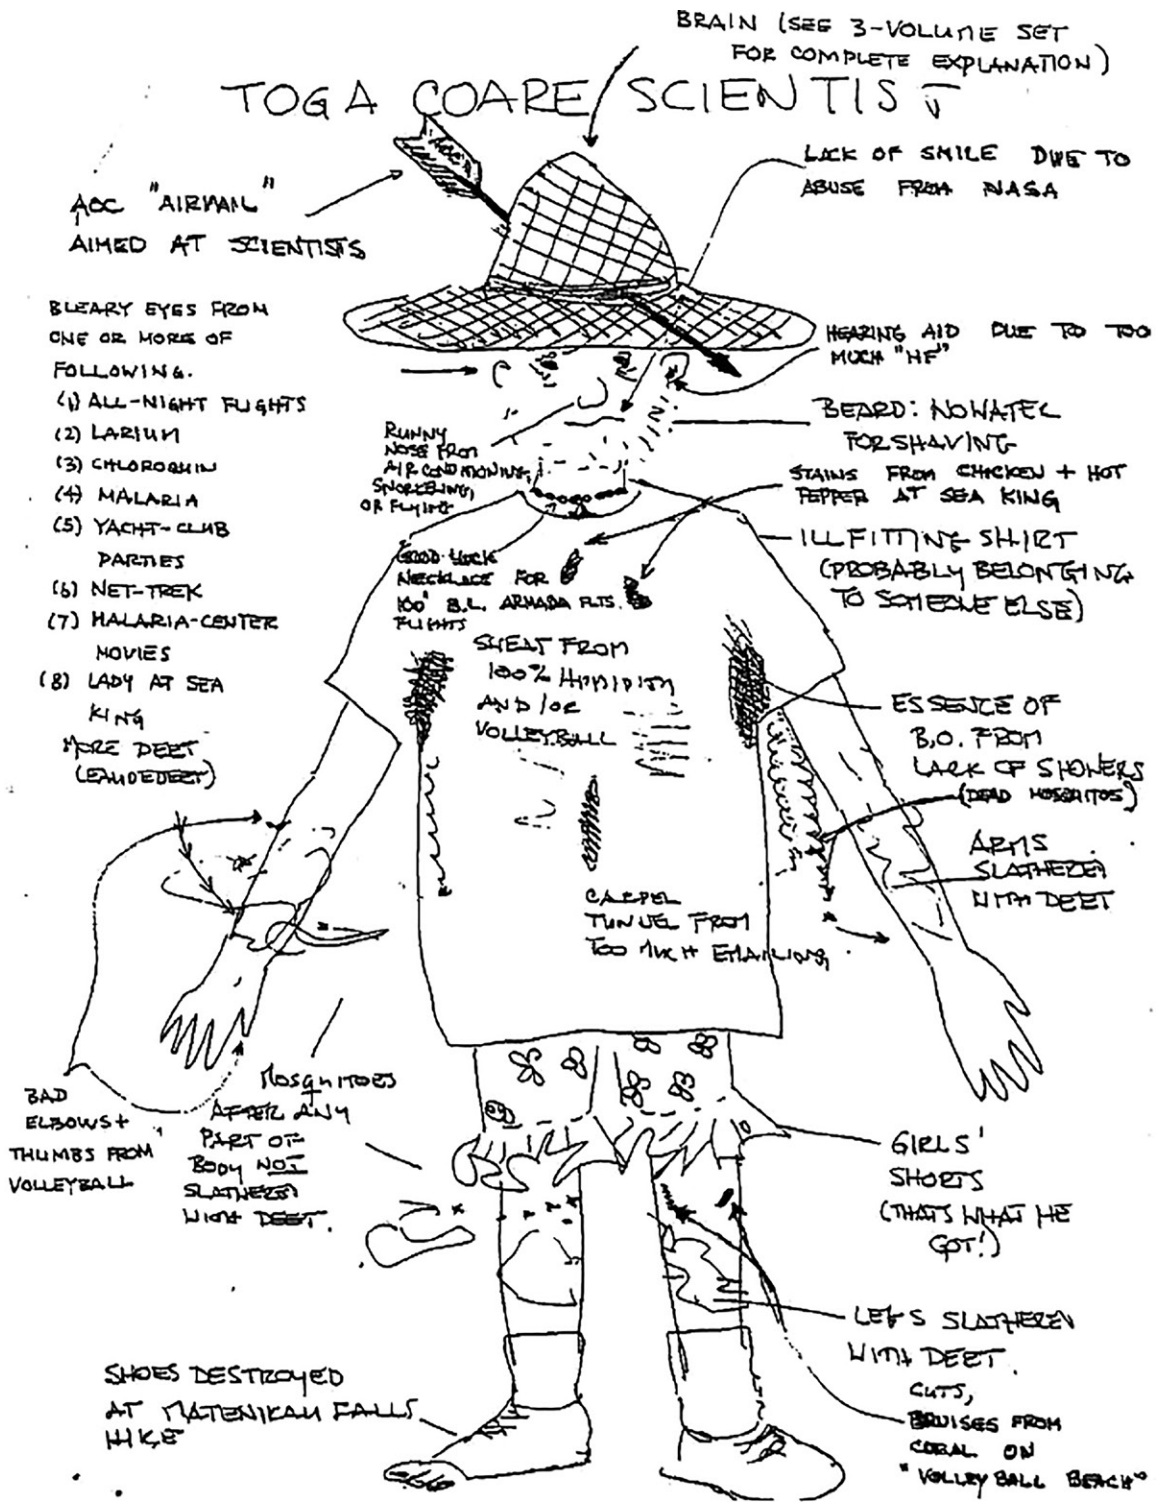 BRAIN (SEE 3-VOLUME SET
FOR COMPLETE EXPLANATION)
TOGA COARE SCIENTIST
LACK OF SMILE DUE TO
ABUSE FROM NASA
AOC "AIRMAIL"
AIMED AT SCIENTISTS
BLEARY EYES FROM
ONE OR MORE OF
FOLLOWING.
(1) ALL-NIGHT FLIGHTS
(2) LARIUM
(3) CHLOROQUIN
(4) MALARIA
(5) YACHT-CLUB
PARTIES
(6) NET-TREK
(7) MALARIA-CENTER
MOVIES
(8) LADY AT SEA
KING
MORE DEET
(EAUDEDEET)
HEARING AID DUE TO TOO
MUCH "HF"
BEARD: NO WATER
FOR SHAVING
STAINS FROM CHICKEN + HOT
PEPPER AT SEA KING
RUNNY
NOSE FROM
AIR CONDITIONING,
SNORKELING,
OR FLYING
ILL FITTING SHIRT
(PROBABLY BELONGING
TO SOMEONE ELSE)
GOOD-LUCK
NECKLACE FOR
100' B.L. ARMADA FLTS.
FLIGHTS
SWEAT FROM
100% HUMIDITY
AND/OR
VOLLEYBALL
ESSENCE OF
B.O. FROM
LACK OF SHOWERS
(DEAD MOSQUITOS)
ARMS
SLATHERED
WITH DEET
CARPEL
TUNNEL FROM
TOO MUCH EMAILING
BAD
ELBOWS +
THUMBS FROM
VOLLEYBALL
MOSQUITOES
AFTER ANY
PART OF
BODY NOT
SLATHERED
WITH DEET.
GIRLS'
SHORTS
(THATS WHAT HE
GOT!)
LEGS SLATHERED
WITH DEET.
CUTS,
BRUISES FROM
CORAL ON
"VOLLEYBALL BEACH"
SHOES DESTROYED
AT MATENIKAU FALLS
HIKE